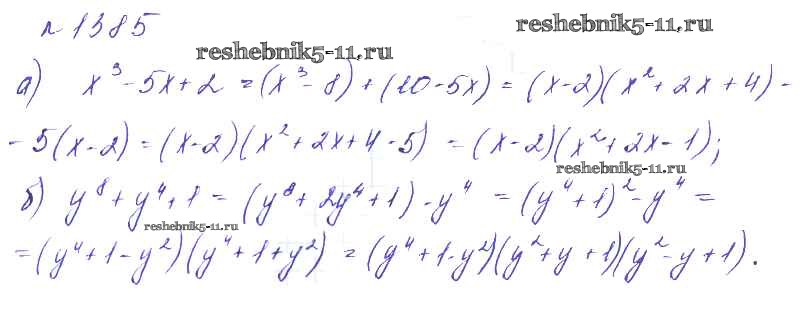 № 1385
reshebnik5-11.ru
reshebnik5-11.ru
а) x³ - 5x + 2 = (x³ - 8) + (10 - 5x) = (x - 2)(x² + 2x + 4) -
- 5(x - 2) = (x - 2)(x² + 2x + 4 - 5) = (x - 2)(x² + 2x - 1);
reshebnik5-11.ru
б) y⁸ + y⁴ + 1 = (y⁸ + 2y⁴ + 1) - y⁴ = (y⁴ + 1)² - y⁴ =
reshebnik5-11.ru
= (y⁴ + 1 - y²)(y⁴ + 1 + y²) = (y⁴ + 1 - y²)(y² + y + 1)(y² - y + 1).